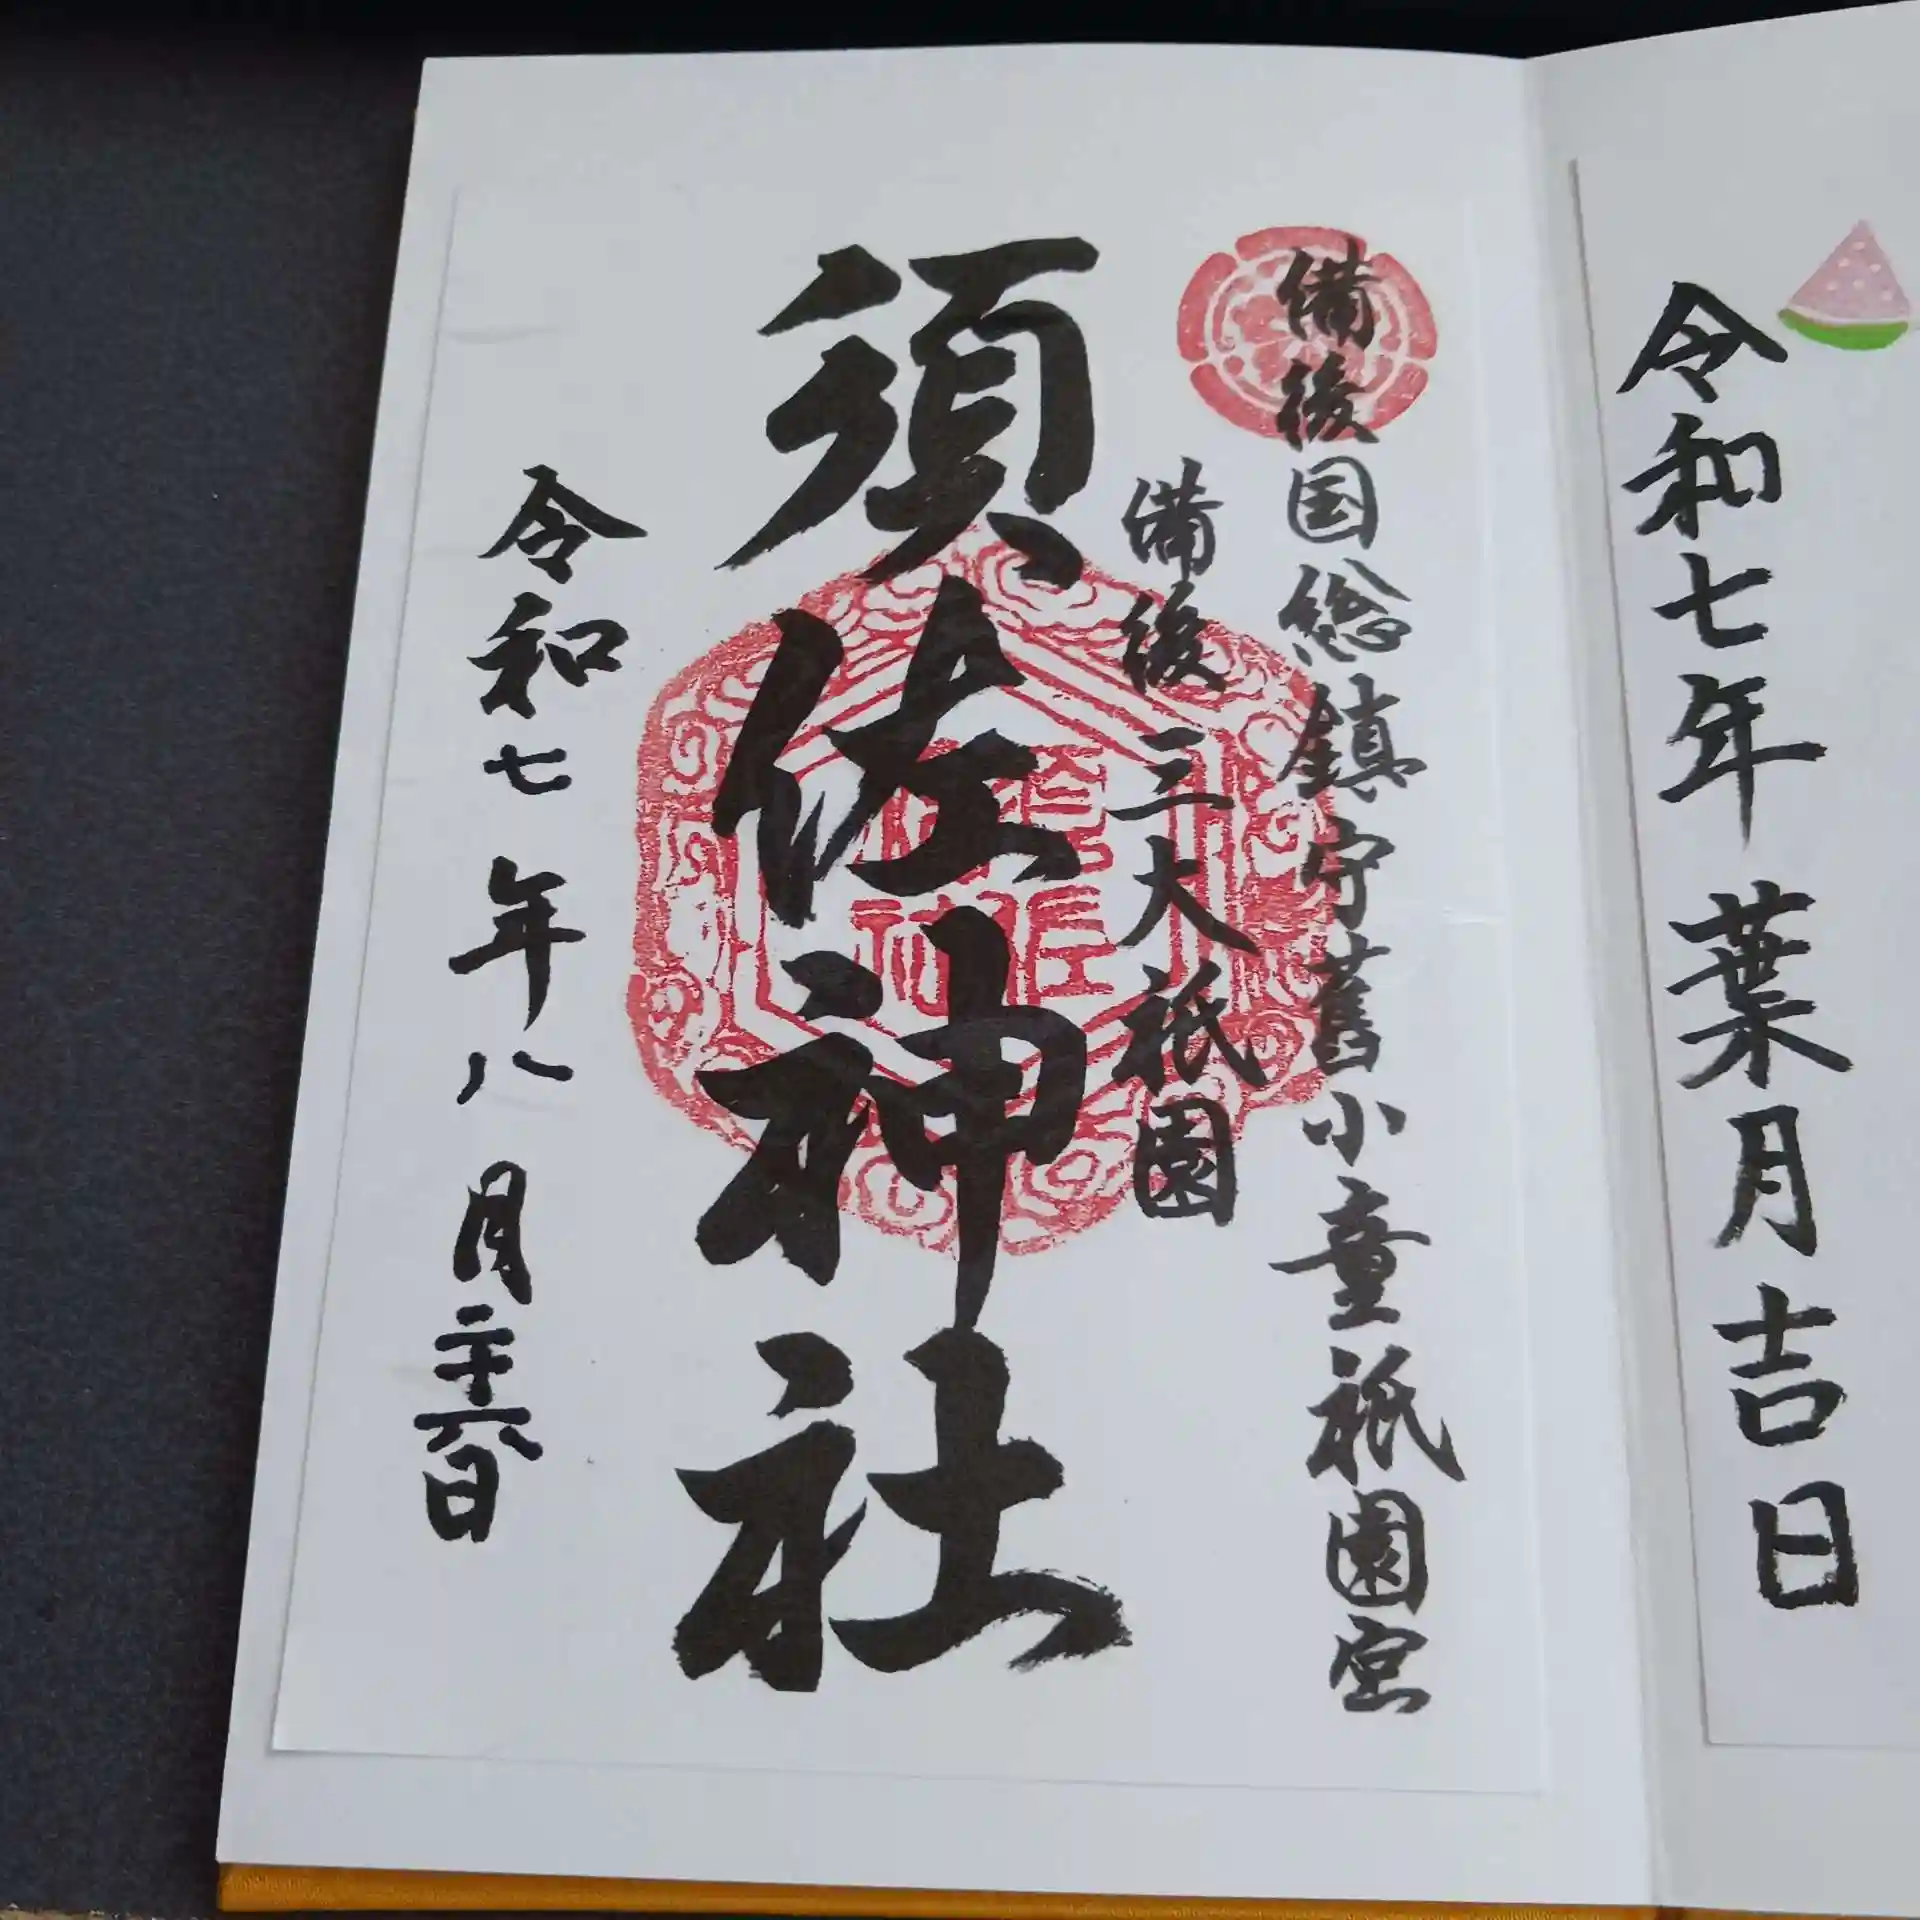 令和七年 葉月吉日
備後国総鎮守舊小童祇園宮
備後三大祇園
須佐神社
令和七年八月二十六日